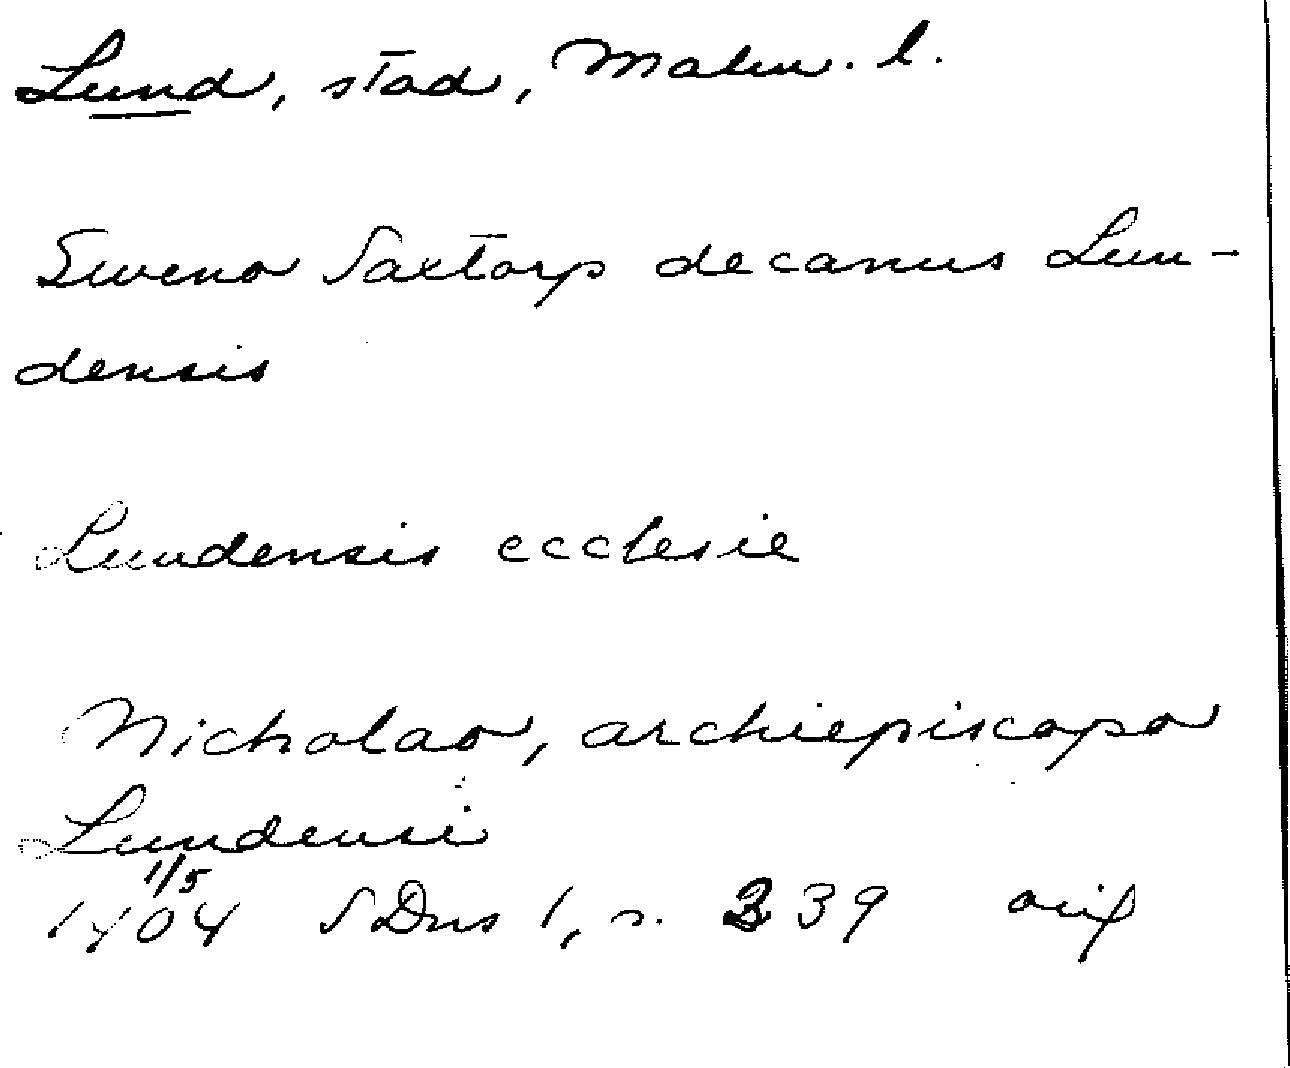 Lund, stad, Malm. l.
Sweno Saxtorp decanus Lun-
densis
Lundensis ecclesie
Nicholao, archiepiscopo
Lundensi
1/5
1404 SDns 1, s. 339